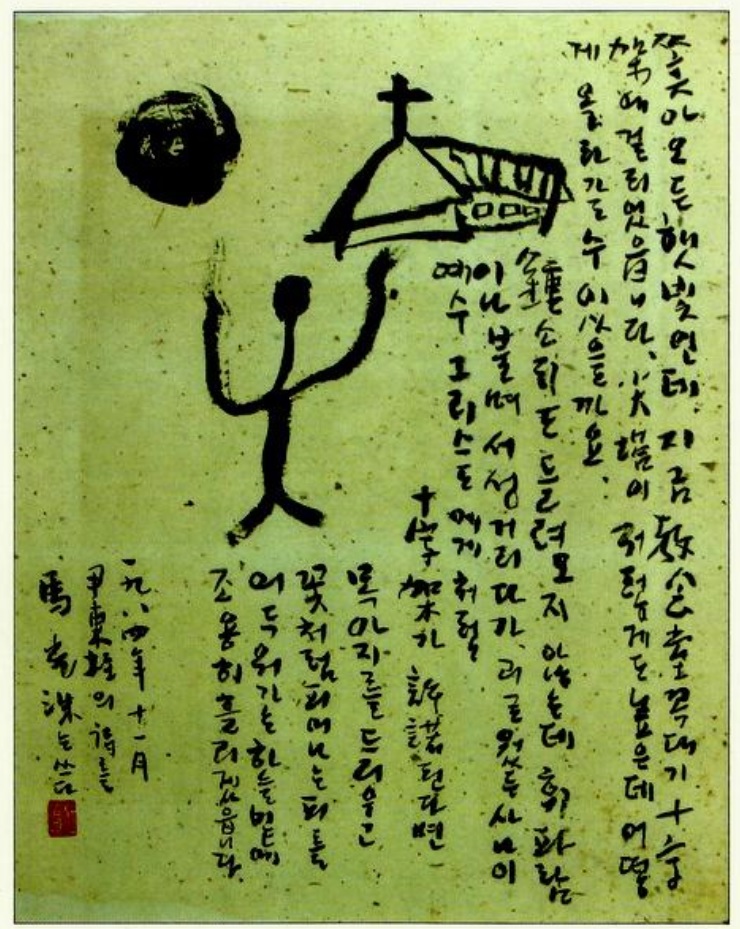 쫓아오든 햇빛인데, 지금 敎會堂 꼭대기 十字
架에 걸리었읍니다. 尖塔이 저렇게도 높은데 어떻
게 올라갈 수 있을까요.
鐘소리도 들려오지 않는데 휘파람
이나 불며 서성거리다가, 괴로웠든 사나이
예수 그리스도에게처럼
十字架가 許諾된다면
목아지를 드리우고
꽃처럼 피어나는 피를
어두워가는 하늘 밑에
조용히 흘리겠읍니다.
一九八四年 十一月
尹東柱의 詩를
馬光洙는 쓰다